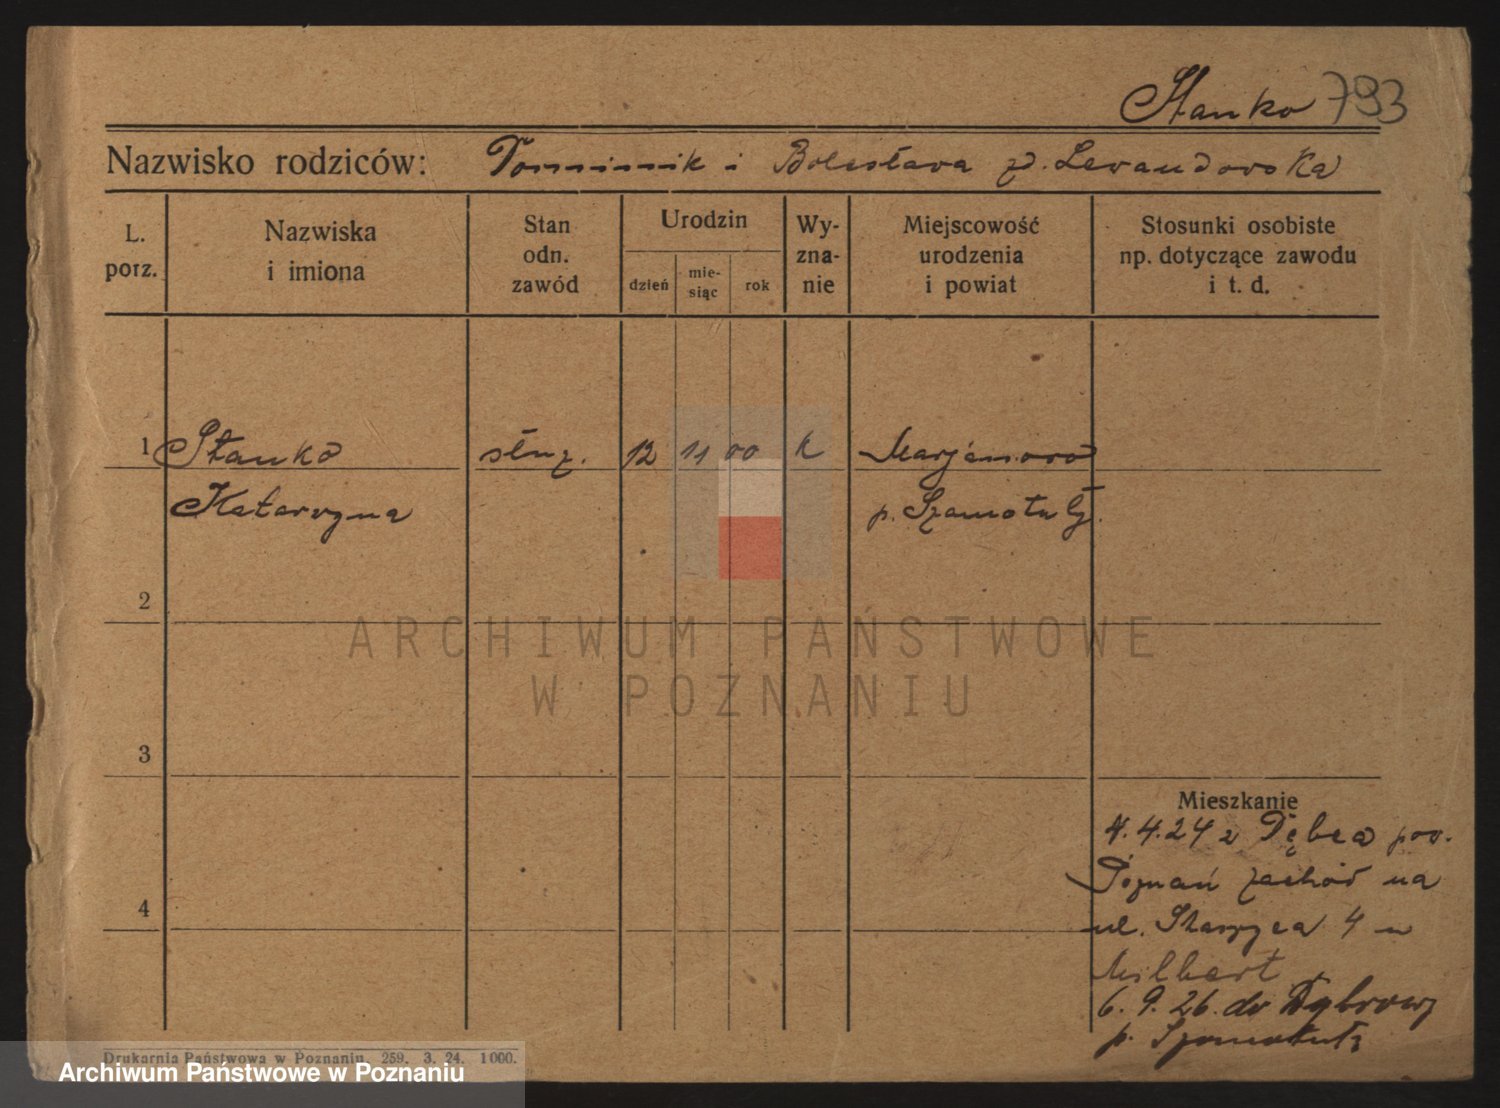 Stanko 793
Nazwisko rodziców: Dominik i Bolesława z d. Lewandowska
L. porz.
Nazwiska i imiona
Stan odn. zawód
Urodzin
dzień
mie-siąc
rok
Wy-zna-nie
Miejscowość urodzenia i powiat
Stosunki osobiste np. dotyczące zawodu i t. d.
1 Stanko służ. 12 11 00 k Marjanowo
Katarzyna p. Szamotuły.
2
ARCHIWUM PAŃSTWOWE
W POZNANIU
3
Mieszkanie
4.4.24 z Dębca pow.
Poznań zachód na
4
ul. Staszyca 4 u
Milbert
6.9.26. do Dąbrowy
p. Szamotuły
Drukarnia Państwowa w Poznaniu. 259. 3. 24. 1000.
Archiwum Państwowe w Poznaniu